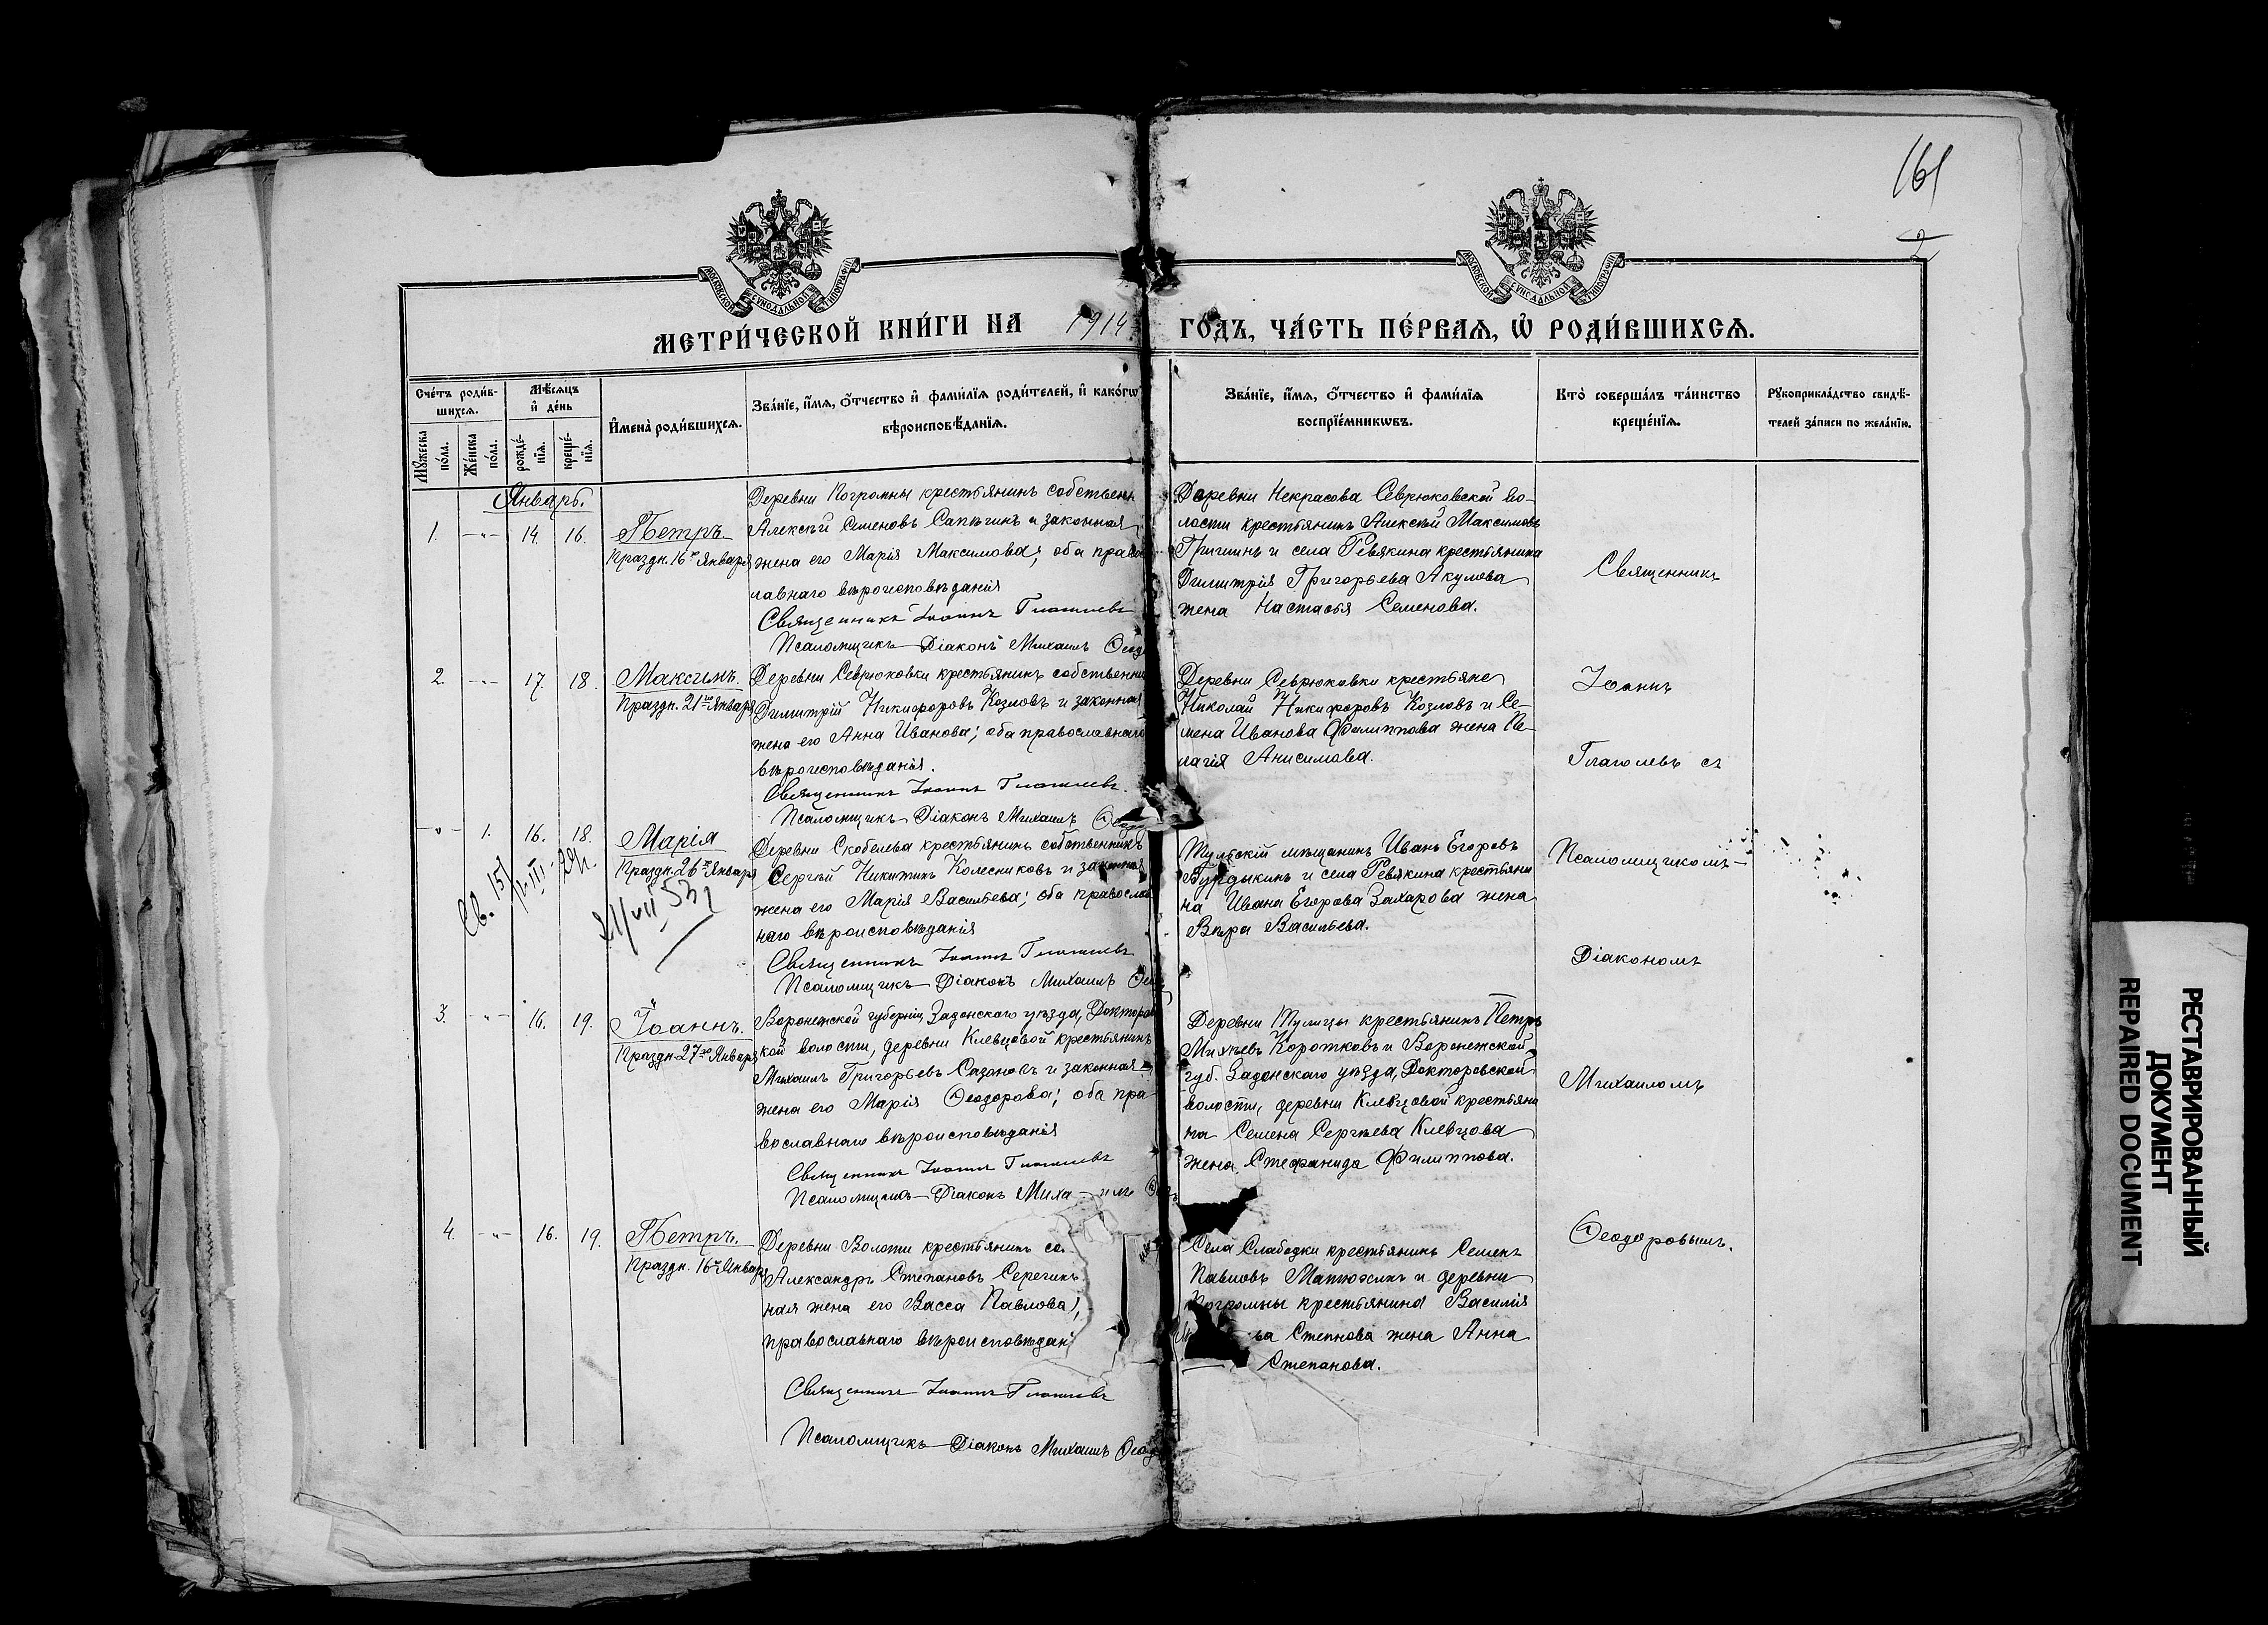 161
2
МОСКОВСКОЙ СѴНОДАЛЬНОЙ ТИПОГРАФІИ
МОСКОВСКОЙ СѴНОДАЛЬНОЙ ТИПОГРАФІИ
МЕТРИ́ЧЕСКОЙ КНИ́ГИ НА 1914 ГО́ДЪ, ЧА́СТЬ ПЕ́РВАѦ, Ѡ҆ РОДИ́ВШИХСѦ.
Сче́тъ роди́в-
шихсѧ.
Мꙋ́жеска
по́ла.
Же́нска
по́ла.
Мѣ́сѧцъ
и҆ де́нь
рожде́-
нїѧ.
креще́-
нїѧ.
И҆мена̀ роди́вшихсѧ.
Зва́нїе, и҆́мѧ, ѻ҆́тчество и҆ фами́лїѧ роди́телей, и҆ како́гѡ
вѣроисповѣ́данїѧ.
Зва́нїе, и҆́мѧ, ѻ҆́тчество и҆ фами́лїѧ
воспрїе́мникѡвъ.
Кто̀ соверша́лъ та́инство
креще́нїѧ.
Рꙋкоприкла́дство свидѣ́-
телей за́писи по жела́нїю.
Январь.
1. -"- 14. 16. Петръ.
Праздн. 16го Января
Деревни Погромны крестьянинъ собственн
Алексѣй Семеновъ Сапѣгинъ и законная
жена его Марія Максимова; оба право
лавнаго вѣроисповѣданія
Священникъ Іоаннъ Глаголевъ
Псаломщикъ-Діаконъ Михаилъ Ѳеод
Деревни Некрасова Севрюковской во-
лости крестьянинъ Алексѣй Максимовъ
Гришинъ и села Ревякина крестьянина
Димитрія Григорьева Акулова
жена Настасья Семенова.
Священникъ
2. -"- 17. 18. Максимъ.
Праздн. 21го Января
Деревни Севрюковки крестьянинъ собственни
Димитрій Никифоровъ Козловъ и законная
жена его Анна Иванова; оба православнаго
вѣроисповѣданія.
Священникъ Іоаннъ Глаголевъ.
Псаломщикъ-Діаконъ Михаилъ Ѳеод
Деревни Севрюковки крестьяне
Николай Никифоровъ Козловъ и Се-
мена Иванова Филиппова жена Пе-
лагія Анисимова.
Іоаннъ
Глаголевъ съ
-"- 1. 16. 18. Марія
Праздн. 26го Января
Св. 151
21/VII 53
Деревни Скобелева крестьянинъ собственникъ
Сергѣй Никитинъ Колесниковъ и законная
жена его Марія Васильева; оба православ
наго вѣроисповѣданія
Священникъ Іоаннъ Глаголевъ
Псаломщикъ-Діаконъ Михаилъ Ѳео
Тульскій мѣщанинъ Иванъ Егоровъ
Бурдыкинъ и села Ревякина крестьяни
на Ивана Егорова Захарова жена
Вѣра Васильева.
Псаломщикомъ-
Діакономъ
3. -"- 16. 19. Іоаннъ.
Праздн. 27го Января
Воронежской губерніи, Задонскаго уѣзда, Докторов
кой волости, деревни Клевцовой крестьянинъ
Михаилъ Григорьевъ Сазоновъ и законная
жена его Марія Ѳеодорова; оба пра
вославнаго вѣроисповѣданія
Священникъ Іоаннъ Глаголевъ
Псаломщикъ-Діаконъ Миха-илъ Ѳео
Деревни Тулицы крестьянинъ Петръ
Михѣевъ Коротковъ и Воронежской
губ. Задонскаго уѣзда, Докторовской
волости, деревни Клевцовой крестьяни
на Семена Сергѣева Клевцова
жена Стефанида Филиппова.
Михаиломъ
4. -"- 16. 19. Петръ.
Праздн. 16го Января
Деревни Волоти крестьянинъ со
Александръ Степановъ Серегинъ
ная жена его Васса Павлова;
православнаго вѣроисповѣдан
Священникъ Іоаннъ Глаголевъ
Псаломщикъ-Діаконъ Михаилъ Ѳеод
Села Слободки крестьянинъ Семенъ
Павловъ Матюхинъ и деревни
Погромны крестьянина Василія
ва Степнова жена Анна
Степанова.
Ѳеодоровымъ.
РЕСТАВРИРОВАННЫЙ
ДОКУМЕНТ
REPAIRED DOCUMENT